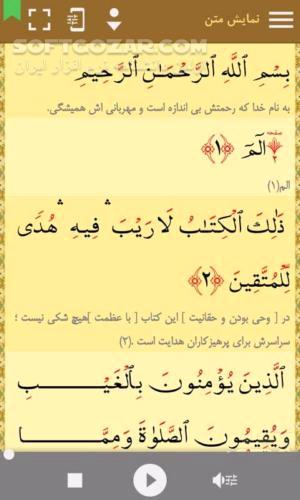 نمایش متن
SOFTGOZAR.COM
بِسْمِ ٱللَّهِ ٱلرَّحْمَـٰنِ ٱلرَّحِيمِ
به نام خدا که رحمتش بی اندازه است و مهربانی اش همیشگی.
صفحه ۲
الٓمٓ ﴿۱﴾
الم(۱)
ذَٰلِكَ ٱلْكِتَـٰبُ لَا رَيْبَ ۛ فِيهِ ۛ هُدًى
لِّلْمُتَّقِينَ ﴿۲﴾
در [ وحی بودن و حقانیت ] این کتابِ [ با عظمت ]هیچ شکی نیست ؛
سراسرش برای پرهیزکاران هدایت است .(۲)
ٱلَّذِينَ يُؤْمِنُونَ بِٱلْغَيْبِ
وَيُقِيمُونَ ٱلصَّلَوٰةَ وَمِمَّا